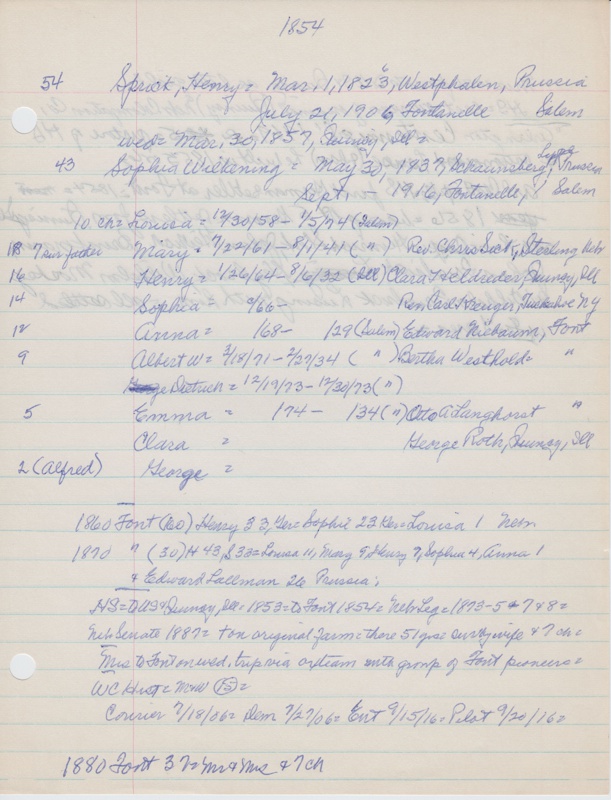 1854
54 Sprick, Henry = Mar, 1, 1823, Westphalen, Prussia
6
July 21, 1906, Fontanelle Salem
wed = Mar, 30, 1857, Quincy, Ill =
43 Sophia Wilkening = May 30, 1837, Braunsberg, Prussia
Lippe
Sept, - 1916, Fontanelle, Salem
10 ch = Louisa = 12/30/58 - 1/5/74 (Salem)
18 7 sur father Mary = 7/22/61 - 8/1/41 ( " ) Rev. Chris Sick, Sterling Neb
16 Henry = 1/26/64 - 8/6/32 (Ill) Clara Heldreder, Quincy, Ill
14 Sophia = 9/66 - Rev. Carl Kreuger, Tuckahoe NY
12 Anna = 168 - 129 (Salem) Edward Niebaum, Font
9 Albert W = 3/18/71 - 2/27/34 ( " ) Bertha Westhold = "
George Dietrich = 12/19/73 - 12/30/73 ( " )
5 Emma = 174 - 134 ( " ) Otto A Langhorst "
Clara = George Roth, Quincy, Ill
2 (Alfred) George =
1860 Font (60) Henry 33, Ger = Sophie 23 Ger = Louisa 1 Neb
1870 " (30) H 43, S 33 = Louisa 11, Mary 9, Henry 7, Sophia 4, Anna 1
& Edward Lallman 26 Prussia,
HS = to US & Quincy, Ill = 1853 = to Font 1854 = Neb Leg = 1873-5 & 7 & 8 =
Neb Senate 1887 = + on original farm = there 51 yrs = surv by wife & 7 ch =
Mrs to Font on wed. trip via ox team with group of Font pioneers =
WC Hist = M&W (15) =
Courier 7/18/06 = Dem 7/27/06 = Ent 9/15/16 = Pilot 9/20/16 =
1880 Font 37 = Mr & Mrs & 7 ch